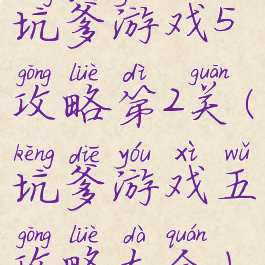 坑爹游戏5
gōng lüè dì guān
攻略第2关(
kēng diē yóu xì wǔ
坑爹游戏五
gōng lüè dà quán
攻略大全)